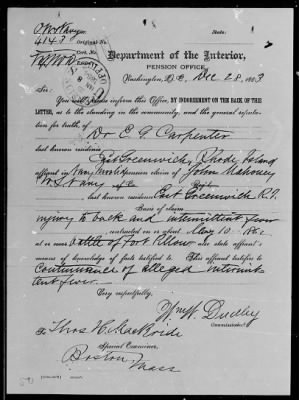 4143
Original No.
State:
Department of the Interior,
PENSION OFFICE,
Washington, D.C., Dec 28, 1883
Sir:
You will please inform this Office, BY INDORSEMENT ON THE BACK OF THE
LETTER, as to the standing in the community, and the general reputa-
tion for truth, of
Dr E. G. Carpenter
last known residence
East Greenwich, Rhode Island
affiant in pension claim of John Mahoney
last known residence East Greenwich R.I.
Basis of claim
injury to back and intermittent fever
contracted on or about May 10, 186
at or near battle of Fort Pillow also state affiant's
means of knowledge of facts testified to. This affiant testifies to
Continuance of alleged intermit
tent fever.
Very respectfully,
Wm W. Dudley
Commissioner.
To Thos H.
Special Examiner,
Boston,
Mass